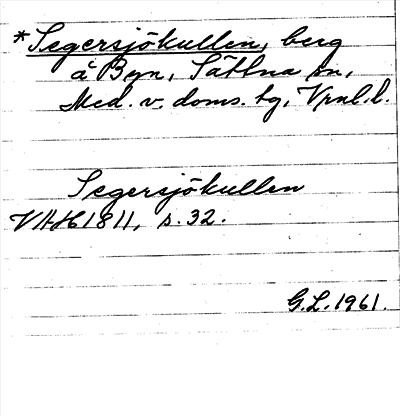 *Segersjökullen, berg
å Byn, Sättna sn,
Med. v. doms. tg, Vrnl. l.
Segersjökullen
VAH 1811, s. 32.
G.L. 1961.